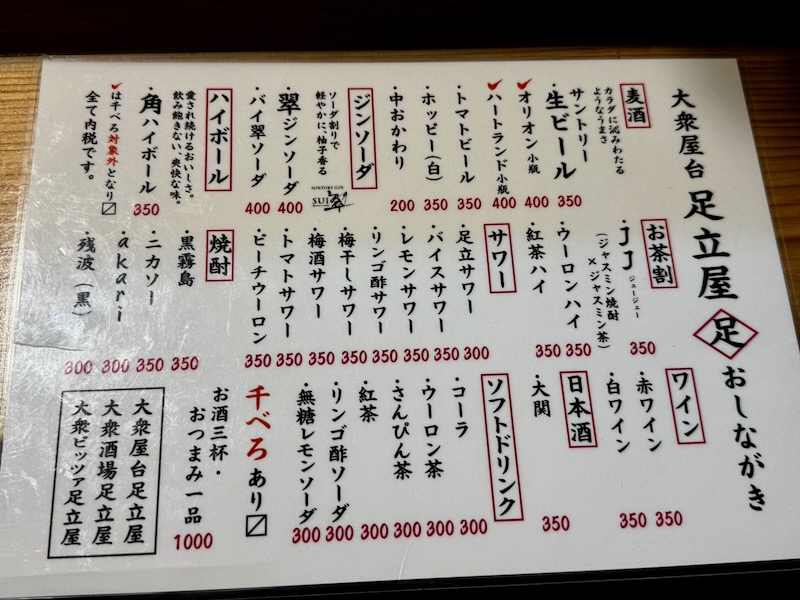 大衆屋台 足立屋 足 おしながき
麦酒
カラダに沁みわたる
ようなうまさ
サントリー
・生ビール 400
・オリオン小瓶 400
・ハートランド小瓶 400
・トマトビール 350
・ホッピー(白) 350
・中おかわり 200
ジンソーダ
ソーダ割りで
軽やかに、柚子香る
SUNTORY GIN
SUI 翠
・翠ジンソーダ 400
・バイ翠ソーダ 400
ハイボール
愛され続けるおいしさ。
飲み飽きない、爽快な味。
・角ハイボール 350
は千べろ対象外となり〼
全て内税です。
お茶割
・JJ ジェージェー 350
(ジャスミン焼酎
×ジャスミン茶)
・ウーロンハイ 350
・紅茶ハイ 350
サワー
・足立サワー 300
・バイスサワー 350
・レモンサワー 350
・リンゴ酢サワー 350
・梅干しサワー 350
・梅酒サワー 350
・トマトサワー 350
・ビーチウーロン 350
焼酎
・黒霧島 350
・ニカソー 350
・akari 300
・残波(黒) 300
ワイン
・赤ワイン 350
・白ワイン 350
日本酒
・大関 350
ソフトドリンク
・コーラ 300
・ウーロン茶 300
・さんぴん茶 300
・紅茶 300
・リンゴ酢ソーダ 300
・無糖レモンソーダ 300
千べろあり〼
お酒三杯・
おつまみ一品
1000
大衆屋台足立屋
大衆酒場足立屋
大衆ピッツァ足立屋